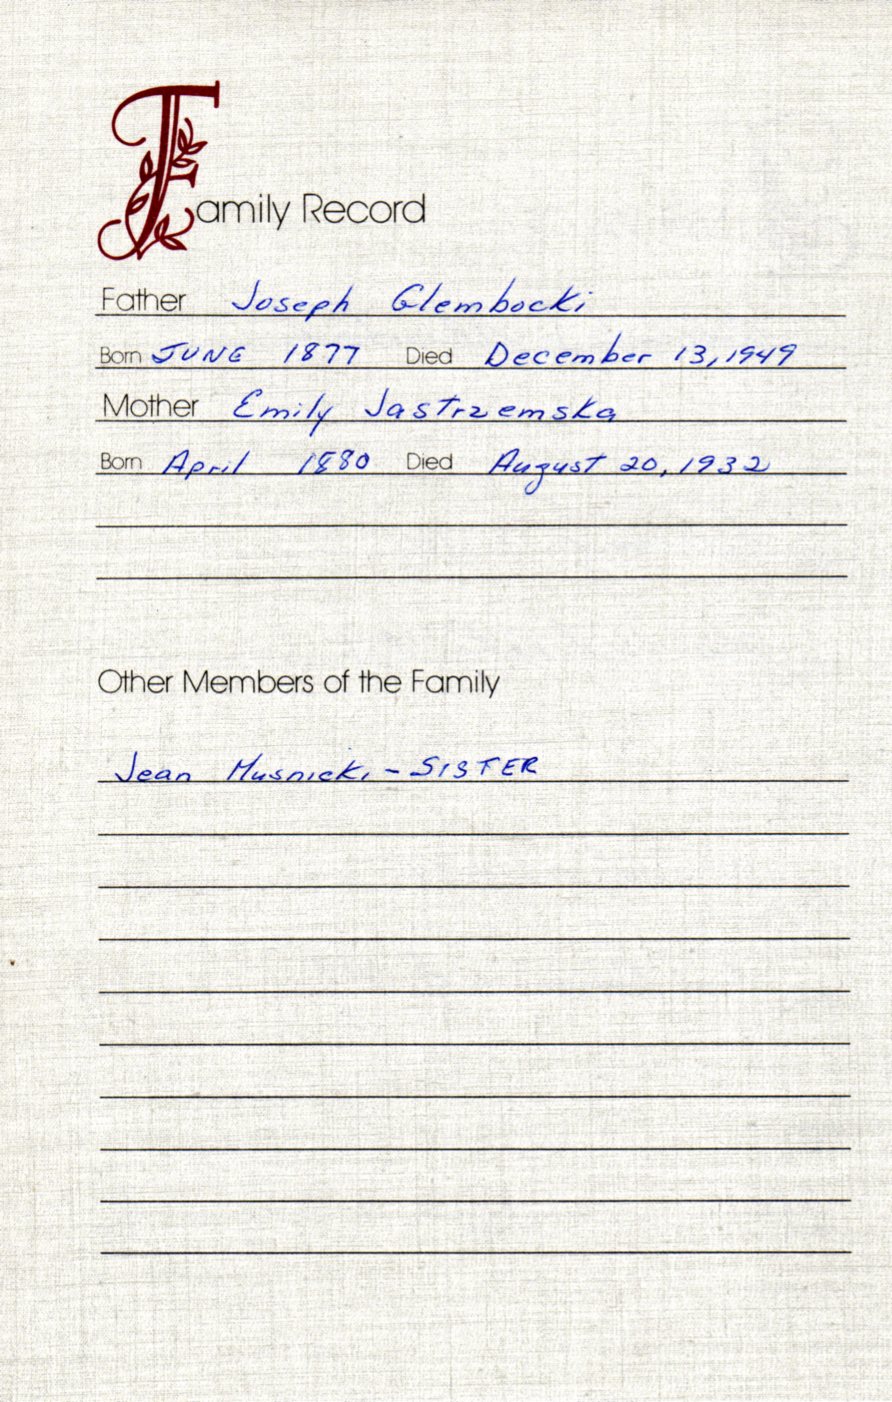 Family Record
Father Joseph Glembocki
Born JUNE 1877 Died December 13, 1949
Mother Emily Jastrzemska
Born April 1880 Died August 20, 1932
Other Members of the Family
Jean Musnicki - SISTER